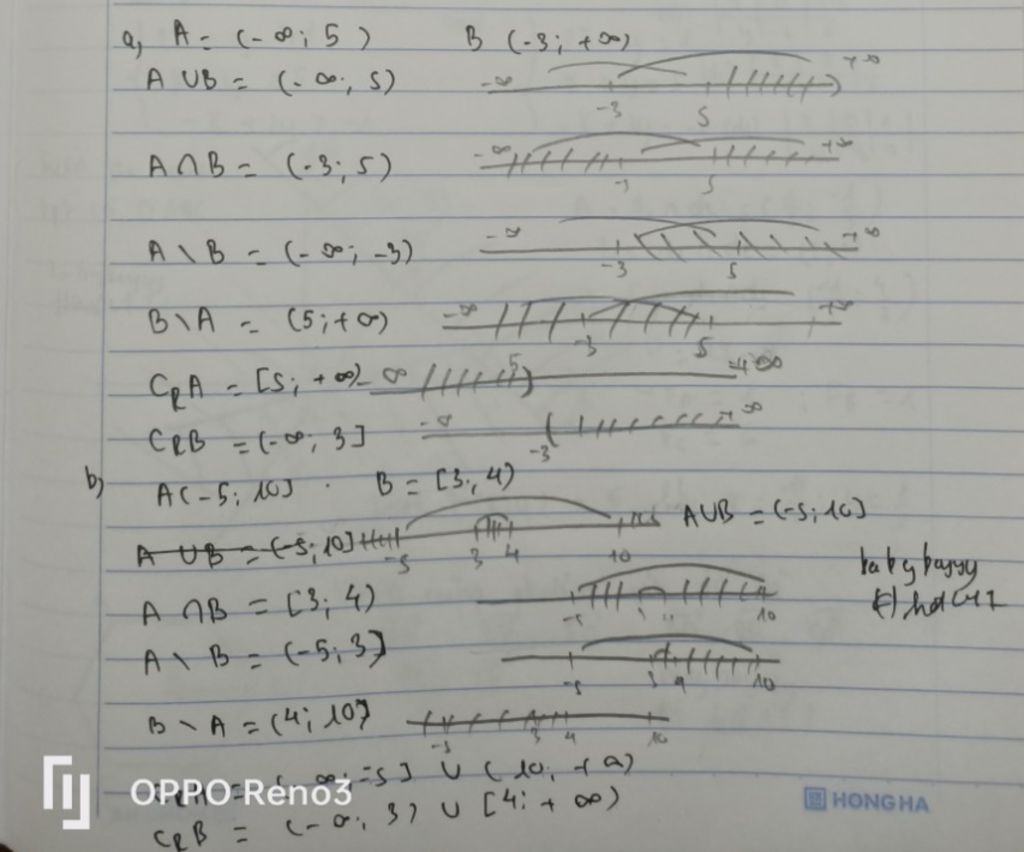 a, A = (-∞; 5) B (-3; +∞)
A ∪ B = (-∞; 5) -∞ -3 5 +∞
A ∩ B = (-3; 5) -∞ 5 +∞
A \ B = (-∞; -3) -∞ -3 5 +∞
B \ A = (5; +∞) -∞ -3 5 +∞
CRA = [5; +∞) -∞ 5 +∞
CRB = (-∞; 3] -∞ -3 +∞
b) A(-5; 10] . B = [3; 4)
A ∪ B = (-5; 10] -5 3 4 10 A∪B = (-5; 10]
A ∩ B = [3; 4) -5 10
A \ B = (-5; 3] -5 3 4 10
B \ A = (4; 10] -5 3 4 10
-∞; -5] ∪ (10; +∞)
CRB = (-∞; 3) ∪ [4; +∞)
OPPO Reno3
HONG HA